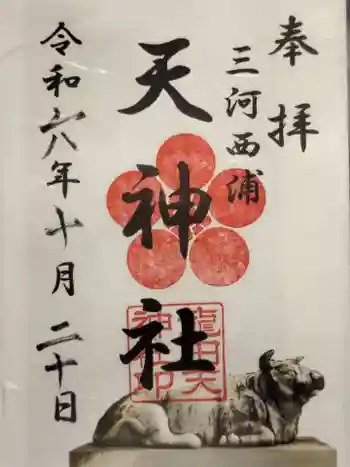 奉拝
三河西浦
天神社
龍田天神社印
令和六八年十月二十日